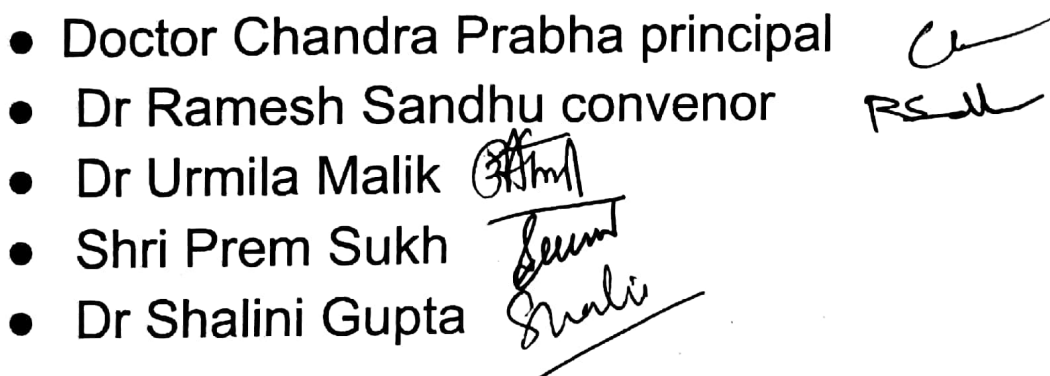 ● Doctor Chandra Prabha principal
● Dr Ramesh Sandhu convenor
● Dr Urmila Malik
● Shri Prem Sukh
● Dr Shalini Gupta